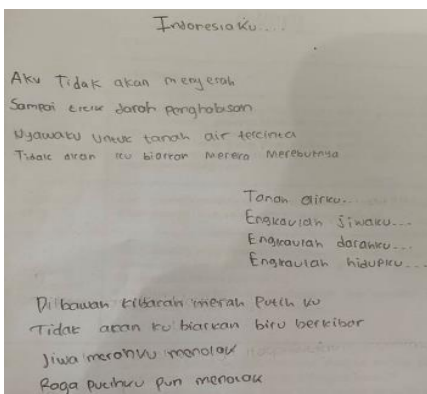 Indonesiaku....
Aku Tidak akan menyerah
Sampai titik darah penghabisan
Nyawaku untuk tanah air tercinta
Tidak akan ku biarkan mereka merebutnya
Tanah airku...
Engkaulah jiwaku...
Engkaulah darahku...
Engkaulah hidupku...
Dibawah kibaran merah Putih ku
Tidak akan ku biarkan biru berkibar
Jiwa merahku menolak
Raga putihku pun menolak